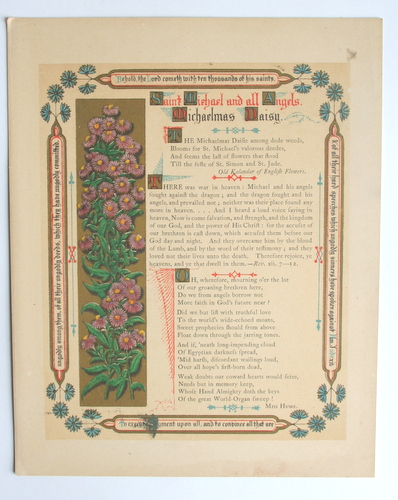 Behold, the Lord cometh with ten thousands of his saints,
Saint Michael and all Angels.
Michaelmas Daisy.
THE Michaelmas Daisie among dede weeds,
Blooms for St. Michael's valorous deedes,
And seems the last of flowers that stood
Till the feste of St. Simon and St. Jude.
Old Kalendar of English Flowers.
THERE was war in heaven: Michael and his angels
fought against the dragon; and the dragon fought and his
angels, and prevailed not; neither was their place found any
more in heaven. . . . And I heard a loud voice saying in
heaven, Now is come salvation, and strength, and the kingdom
of our God, and the power of His Christ: for the accuser of
our brethren is cast down, which accused them before our
God day and night. And they overcame him by the blood
of the Lamb, and by the word of their testimony; and they
loved not their lives unto the death. Therefore rejoice, ye
heavens, and ye that dwell in them.—Rev. xii. 7—12.
OH, wherefore, mourning o'er the lot
Of our groaning brethren here,
Do we from angels borrow not
More faith in God's future near?
Did we but list with trustful love
To the world's wide-echoed moans,
Sweet prophecies should from above
Float down through the jarring tones.
And if, 'neath long-impending cloud
Of Egyptian darkness spread,
'Mid harsh, discordant wailings loud,
Over all hope's first-born dead,
Weak doubts our coward hearts would seize,
Needs but in memory keep,
Whose Hand Almighty doth the keys
Of the great World-Organ sweep!
Mrs Hume.
To execute judgment upon all, and to convince all that are
ungodly among them, of all their ungodly deeds, which they have ungodly committed,
& of all their hard speeches which ungodly sinners have spoken against